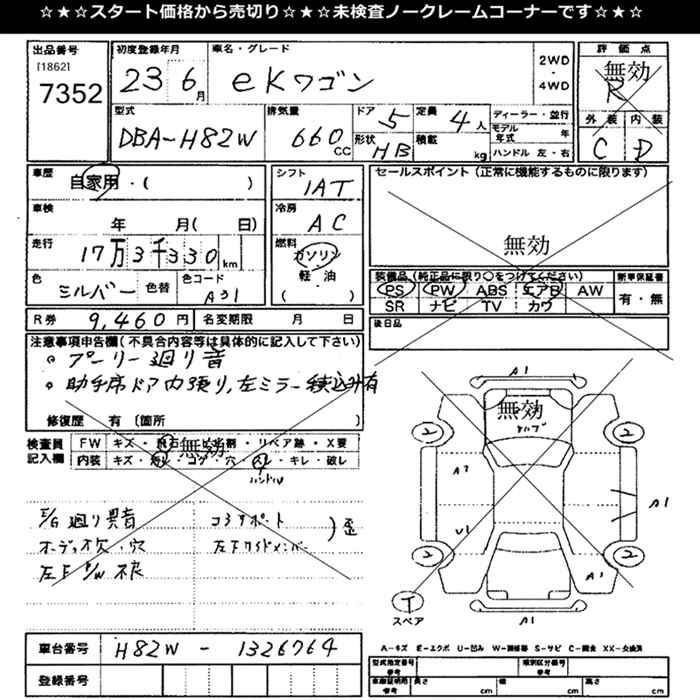 ☆★☆スタート価格から売切り☆★☆未検査ノークレームコーナーです☆★☆
出品番号 初度登録年月 車名・グレード 2WD・4WD 評価点
[1862]
7352 23 6月 eKワゴン 無効 R
型式 排気量 ドア 定員 ディーラー・並行 外装 内装
DBA-H82W 660CC 5 4人 モデル年式 年 C D
形状 HB 積載 kg ハンドル 左・右
車歴 自家用・( ) シフト 1AT セールスポイント (正常に機能するものに限ります)
車検 年 月( 日) 冷房 AC
無効
走行 17万3千330km 燃料 ガソリン 軽・油 ( )
色 シルバー 色替 色コード A31
装備品 (純正品に限り○をつけてください) 新車保証書
PS PW ABS エアB AW 有・無
SR ナビ TV カワ
R券 9,460円 名変期限 月 日 後日品
注意事項申告欄 (不具合内容等は具体的に記入して下さい)
。プーリー廻り音
。助手席ドア内張り,左ミラー 積込み有
修復歴 有 (箇所 )
検査員記入欄 FW キズ・飛石・ ・リペア跡・X要
無効
内装 キズ・ ・コゲ・穴・ ・キレ・破レ
ハンドル
E/G廻り異音 コラサポート )歪
オーディオ欠・穴 左フサイドメンバー
左F P/W 不良
A1
無効
2 2
A2 A1
U1
2 2
A1
T
スペア A1
A-キズ E-エクボ U-凹み W-補修跡 S-サビ C-腐食 XX-交換済
車台番号 H82W - 1326764
登録番号
型式指定番号 参考 類別区分番号 参考
車庫証明用 参考 長さ cm 幅 cm 高さ cm